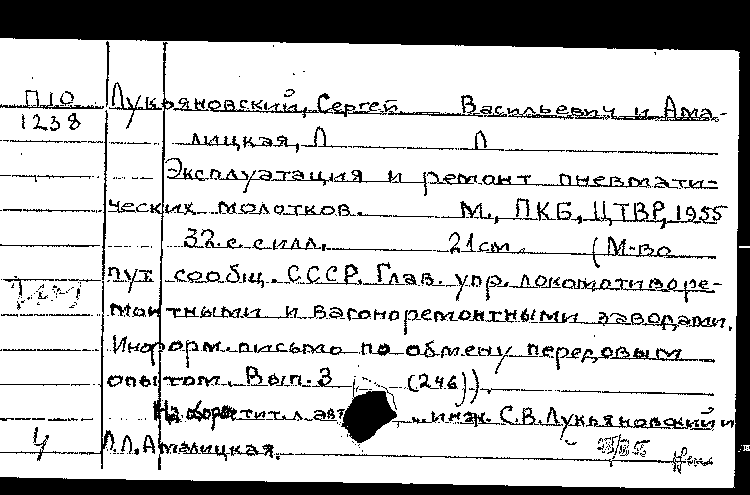 П10
1238
Лукьяновский, Сергей Васильевич и Ама-
лицкая, Л Л
Эксплуатация и ремонт пневмати-
ческих молотков. М., ПКБ, ЦТВР, 1955
32 с. с илл. 21 см. (М-во
пут. сообщ. СССР. Глав. упр. локомотиворе-
монтными и вагоноремонтными заводами.
Информ. письмо по обмену передовым
опытом. Вып. 3 (246)).
На оборот тит. л. авт инж. С.В. Лукьяновский и
4 Л.Л. Амалицкая.